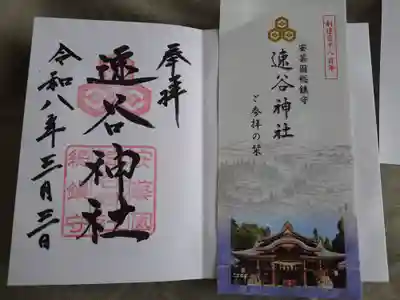 奉拝
速谷神社
令和八年三月三日
安藝國
総鎮守
創建千八百年
安芸国総鎮守
速谷神社
ご参拝の栞